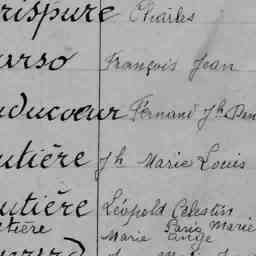 rispure Charles
urso François Jean
uducoeur Fernand Jh Ben
utière Jh Marie Louis
utière Léopold Celestin
tière Marie Ange Paris Marie